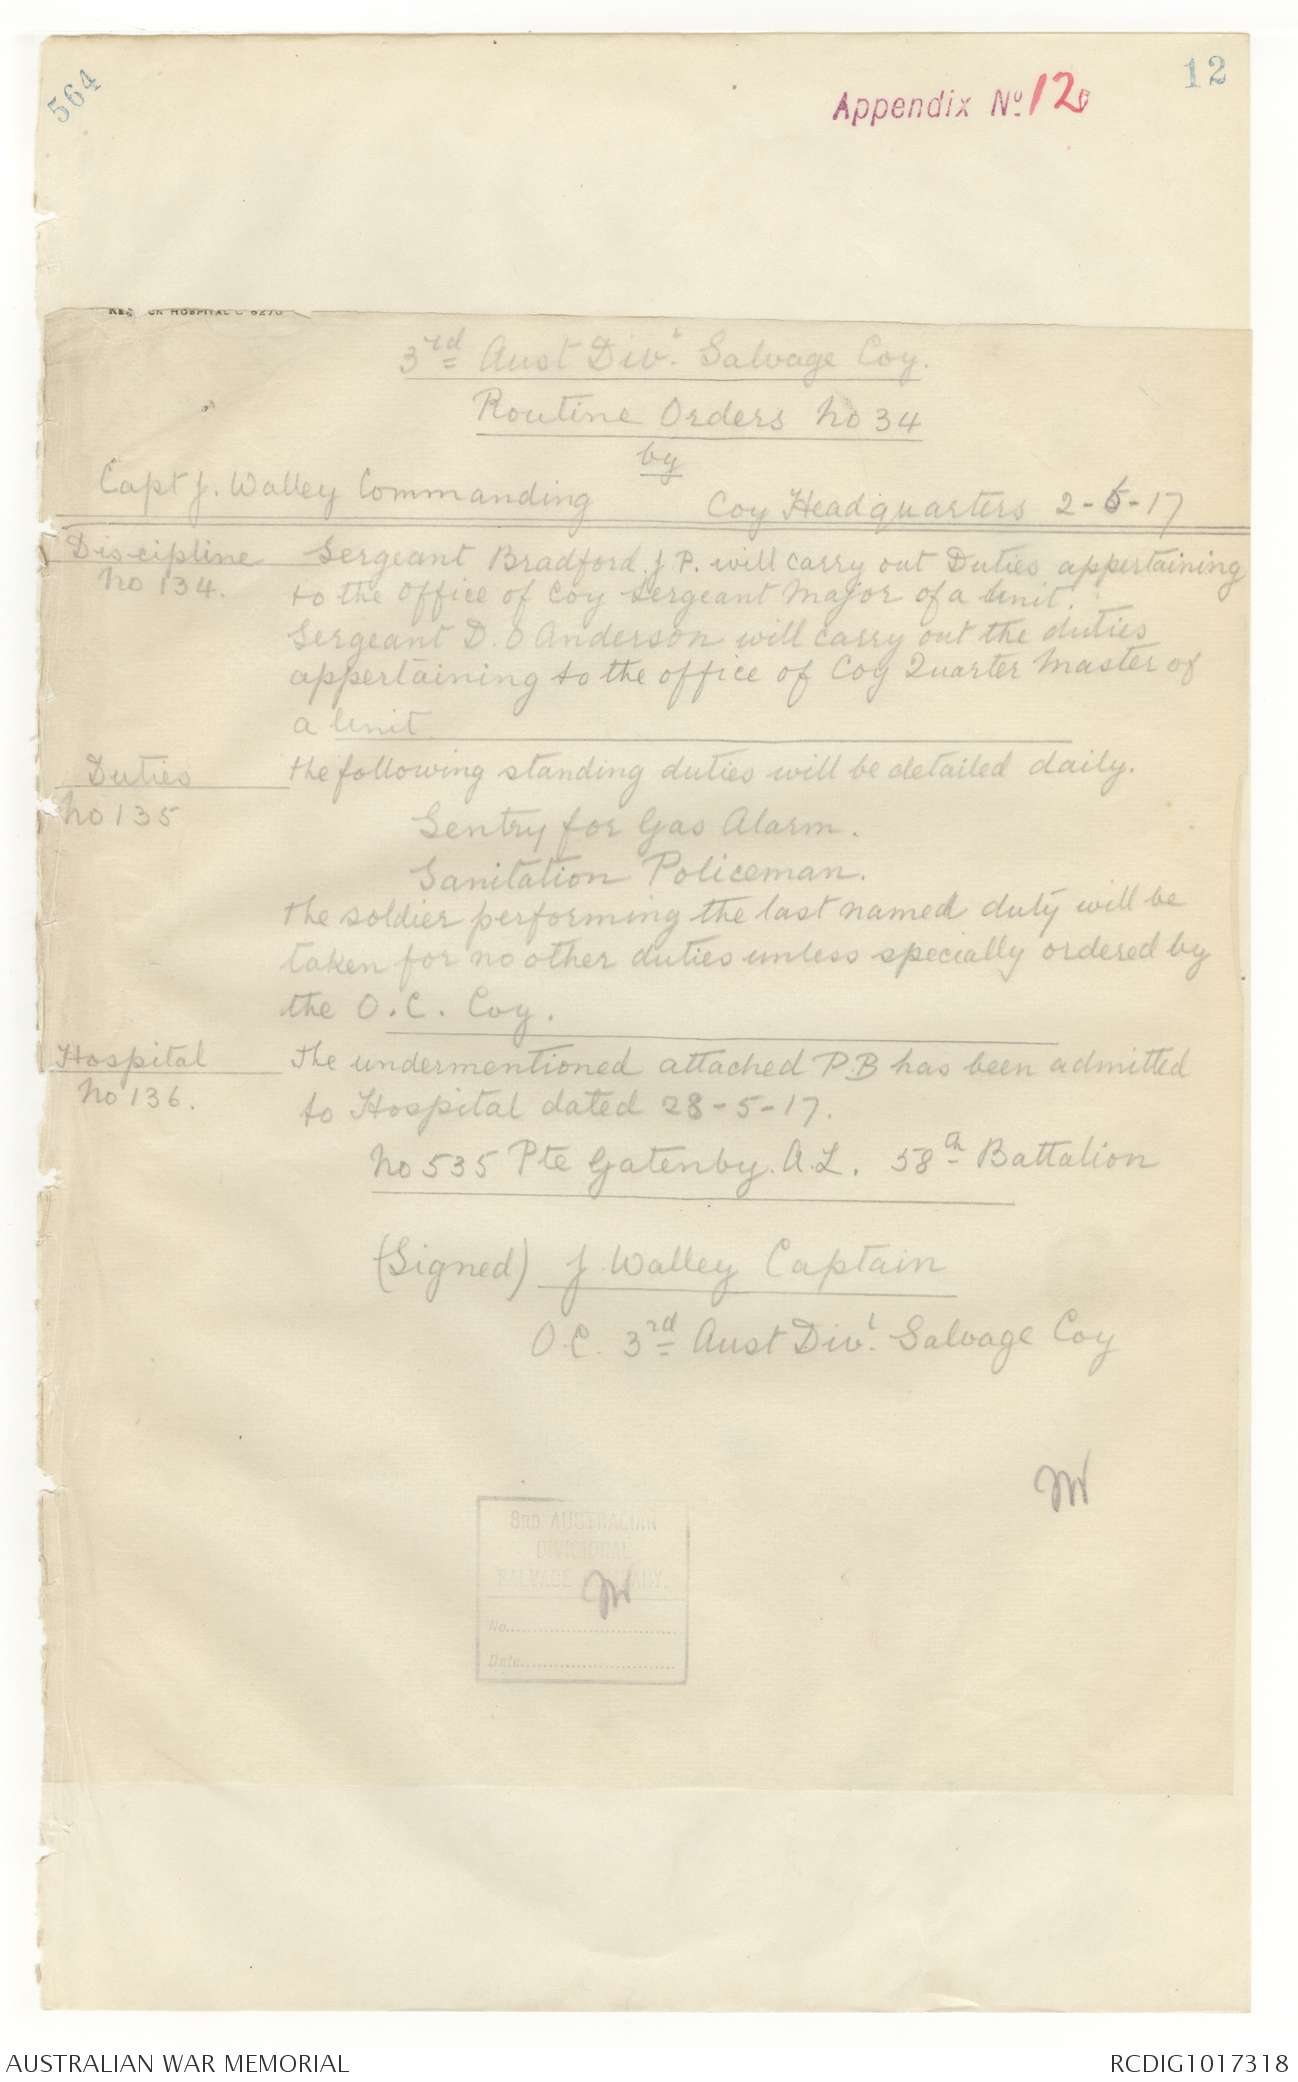 564
12
Appendix No 12
HOSPITAL
3rd Aust Divl. Salvage Coy.
Routine Orders No 34
by
Capt J. Walley Commanding
Coy Headquarters 2-6-17
Discipline
No 134.
Sergeant Bradford. J P. will carry out Duties appertaining
to the Office of Coy Sergeant Major of a Unit.
Sergeant D. O Anderson will carry out the duties
appertaining to the office of Coy Quarter Master of
a Unit
Duties
No 135
The following standing duties will be detailed daily.
Sentry for Gas Alarm.
Sanitation Policeman.
The soldier performing the last named duty will be
taken for no other duties unless specially ordered by
the O.C. Coy.
Hospital
No 136.
The undermentioned attached P.B has been admitted
to Hospital dated 28-5-17.
No 535 Pte Gatenby. A.L. 58th Battalion
(Signed) J Walley Captain
O.C. 3rd Aust Divl. Salvage Coy
3RD AUSTRALIAN
DIVISIONAL
SALVAGE COMPANY.
No.
Date
AUSTRALIAN WAR MEMORIAL
RCDIG1017318